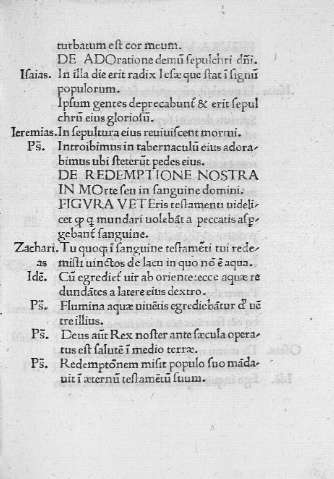 turbatum est cor meum.
DE ADOratione demū sepulchri dn̄i.
Isaias. In illa die erit radix Iesǽ que stat ī signū
populorum.
Ipsum gentes deprecabunt̃ & erit sepul
chrū eius gloriosū.
Ieremias. In sepultura eius reuiuiscent mortui.
Ps̄. Introibimus in tabernaculū eius adora-
bimus ubi steterūt pedes eius.
DE REDEMPTIONE NOSTRA
IN MOrte seu in sanguine domini.
FIGVRA VETEris testamenti uideli-
cet ꝙ ꝗ mundari uolebāt a peccatis asp̱-
gebant̃ sanguine.
Zachari- Tu quoqꝫ ī sanguine testamēti tui rede-
as misti uinctos de lacu in quo nō ē aqua.
Idē. Cū egredict̃ uir ab oriente: ecce aquæ re
dundātes a latere eius dextro.
Ps̄. Flumina aquæ uiuētis egrediebātur d' uē
tre illius.
Ps̄. Deus aūt Rex noster ante sæcula opera-
tus est salutē ī medio terræ.
Ps̄. Redemptōnem misit populo suo māda-
uit ī æternū testamētū suum.